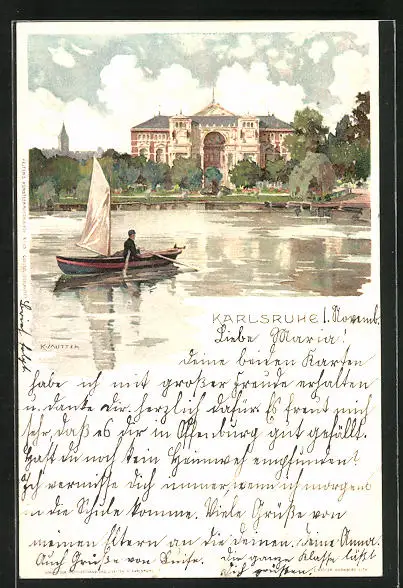 KARLSRUHE 1. Novemb.
K. MUTTER
Liebe Maria!
deine beiden Karten
habe ich mit großer Freude erhalten
u. danke dir herzlich dafür. Es freut mich
sehr, daß es dir in Offenburg gut gefällt.
Hast du noch kein Heimweh empfunden?
Ich vermisse dich immer, wenn ich morgens
in die Schule komme. Viele Grüße von
meinen Eltern an die deinen, deine Anna.
Auch Grüße von Luise. Die ganze Klasse läßt
dich grüßen.